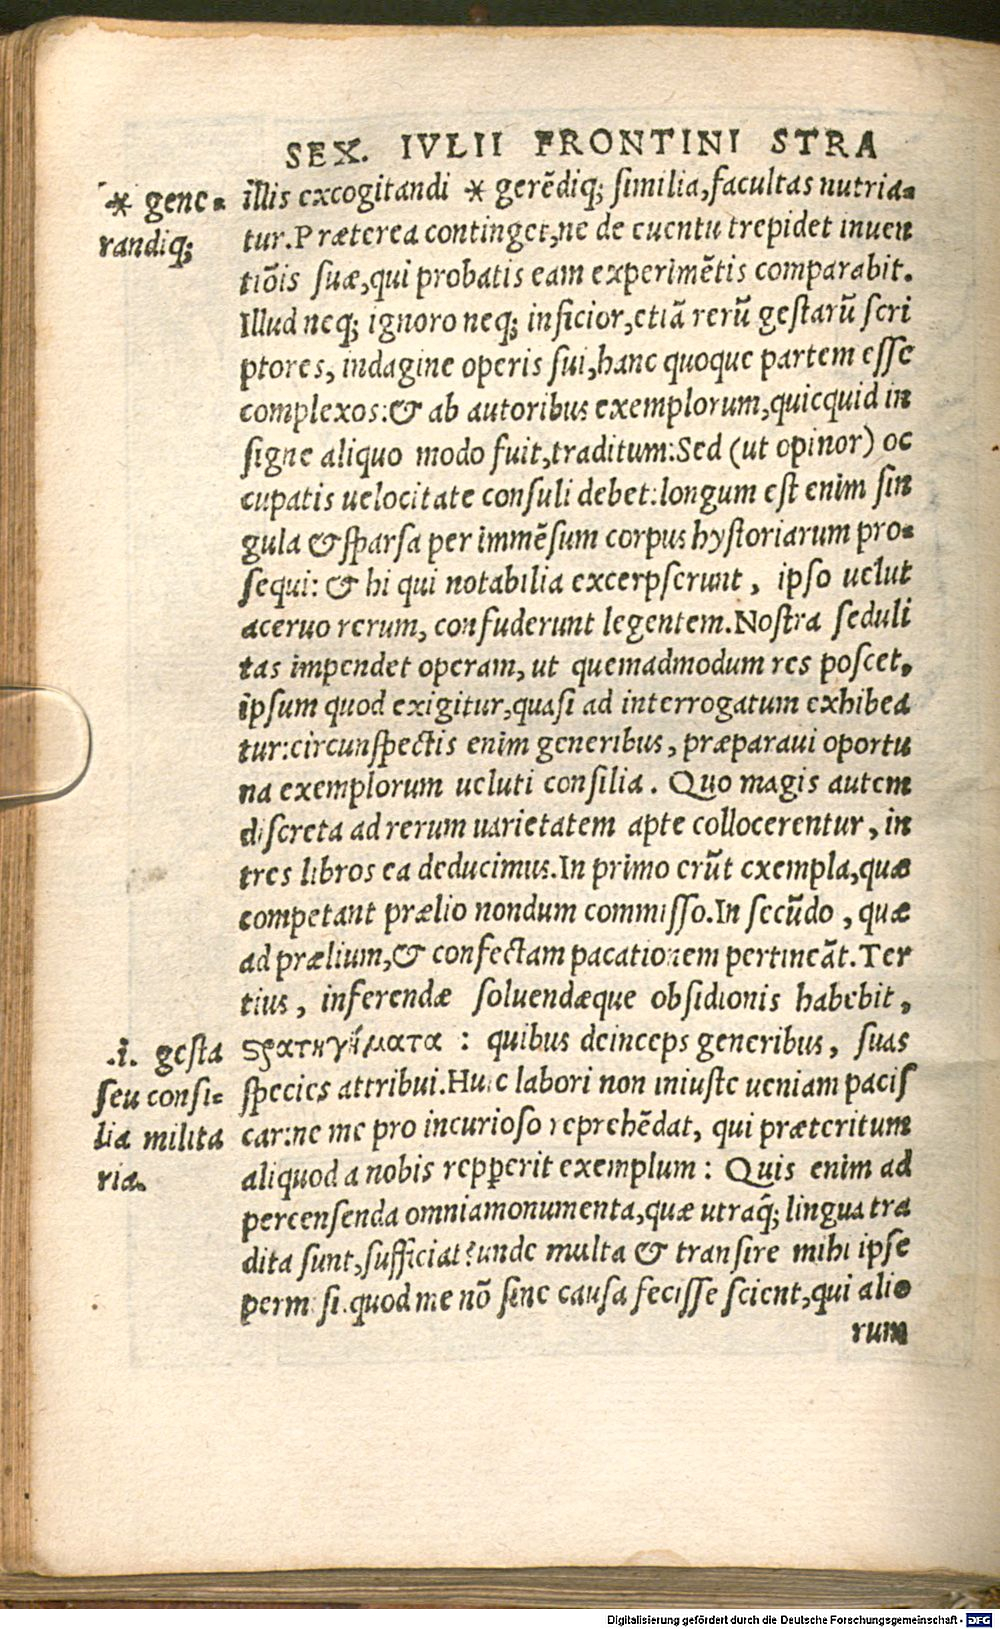 SEX. IVLII FRONTINI STRA
illis excogitandi * gerēdiq; similia, facultas nutria-
tur. Præterea continget, ne de euentu trepidet inuen
tiōis suæ, qui probatis eam experimētis comparabit.
Illud neq; ignoro neq; inficior, etiā rerū gestarū scri
ptores, indagine operis sui, hanc quoque partem esse
complexos: & ab autoribus exemplorum, quicquid in
signe aliquo modo fuit, traditum: Sed (ut opinor) oc
cupatis uelocitate consuli debet: longum est enim sin
gula & sparsa per immēsum corpus hystoriarum pro-
sequi: & hi qui notabilia excerpserunt, ipso uelut
aceruo rerum, confuderunt legentem. Nostra seduli
tas impendet operam, ut quemadmodum res poscet,
ipsum quod exigitur, quasi ad interrogatum exhibea
tur: circunspectis enim generibus, præparaui oportu
na exemplorum ueluti consilia. Quo magis autem
discreta ad rerum uarietatem apte collocerentur, in
tres libros ea deducimus. In primo erūt exempla, quæ
competant prælio nondum commisso. In secūdo, quæ
ad prælium, & confectam pacationem pertineāt. Ter
tius, inferendæ soluendæque obsidionis habebit,
ϛρατηγήματα: quibus deinceps generibus, suas
species attribui. Huic labori non iniuste ueniam pacis
car: ne me pro incurioso reprehēdat, qui præteritum
aliquod a nobis repperit exemplum: Quis enim ad
percensenda omnia monumenta, quæ utraq; lingua tra
dita sunt, sufficiat? unde multa & transire mihi ipse
permisi. quod me nō sine causa fecisse scient, qui alio
rum
* gene-
randiq;
.i. gesta
seu consi-
lia milita
ria.
Digitalisierung gefördert durch die Deutsche Forschungsgemeinschaft - DFG